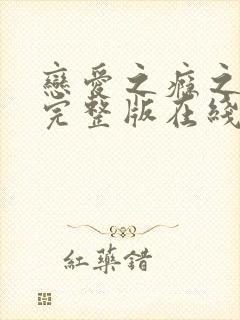 戀愛之癮之
完整版在綫
紅藥錯